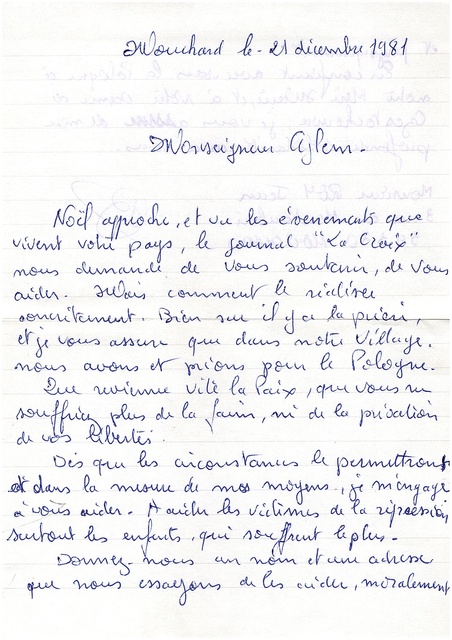 Mouchard le - 21 décembre 1981
Monseigneur Glemp -
Noël approche, et vu les évènements que
vivent votre pays, le journal "La Croix"
nous demande de vous soutenir, de vous
aider - Mais comment le réaliser
concrètement. Bien sur il y a la prière,
et je vous assure que dans notre village.
nous avons et prions pour la Pologne.
Que revienne vite la Paix, que vous ne
souffriez plus de la faim, ni de la privation
de vos libertés.
Dès que les circonstances le permettront
et dans la mesure de mes moyens, je m'engage
à vous aider - A aider les victimes de la répression
surtout les enfants, qui souffrent le plus -
Donnez-nous un nom et une adresse
que nous essayons de les aider, moralement